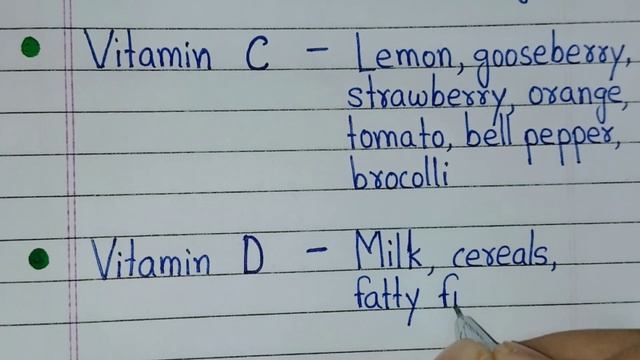 Vitamin C - Lemon, gooseberry,
strawberry, orange,
tomato, bell pepper,
brocolli
Vitamin D - Milk, cereals,
fatty fi